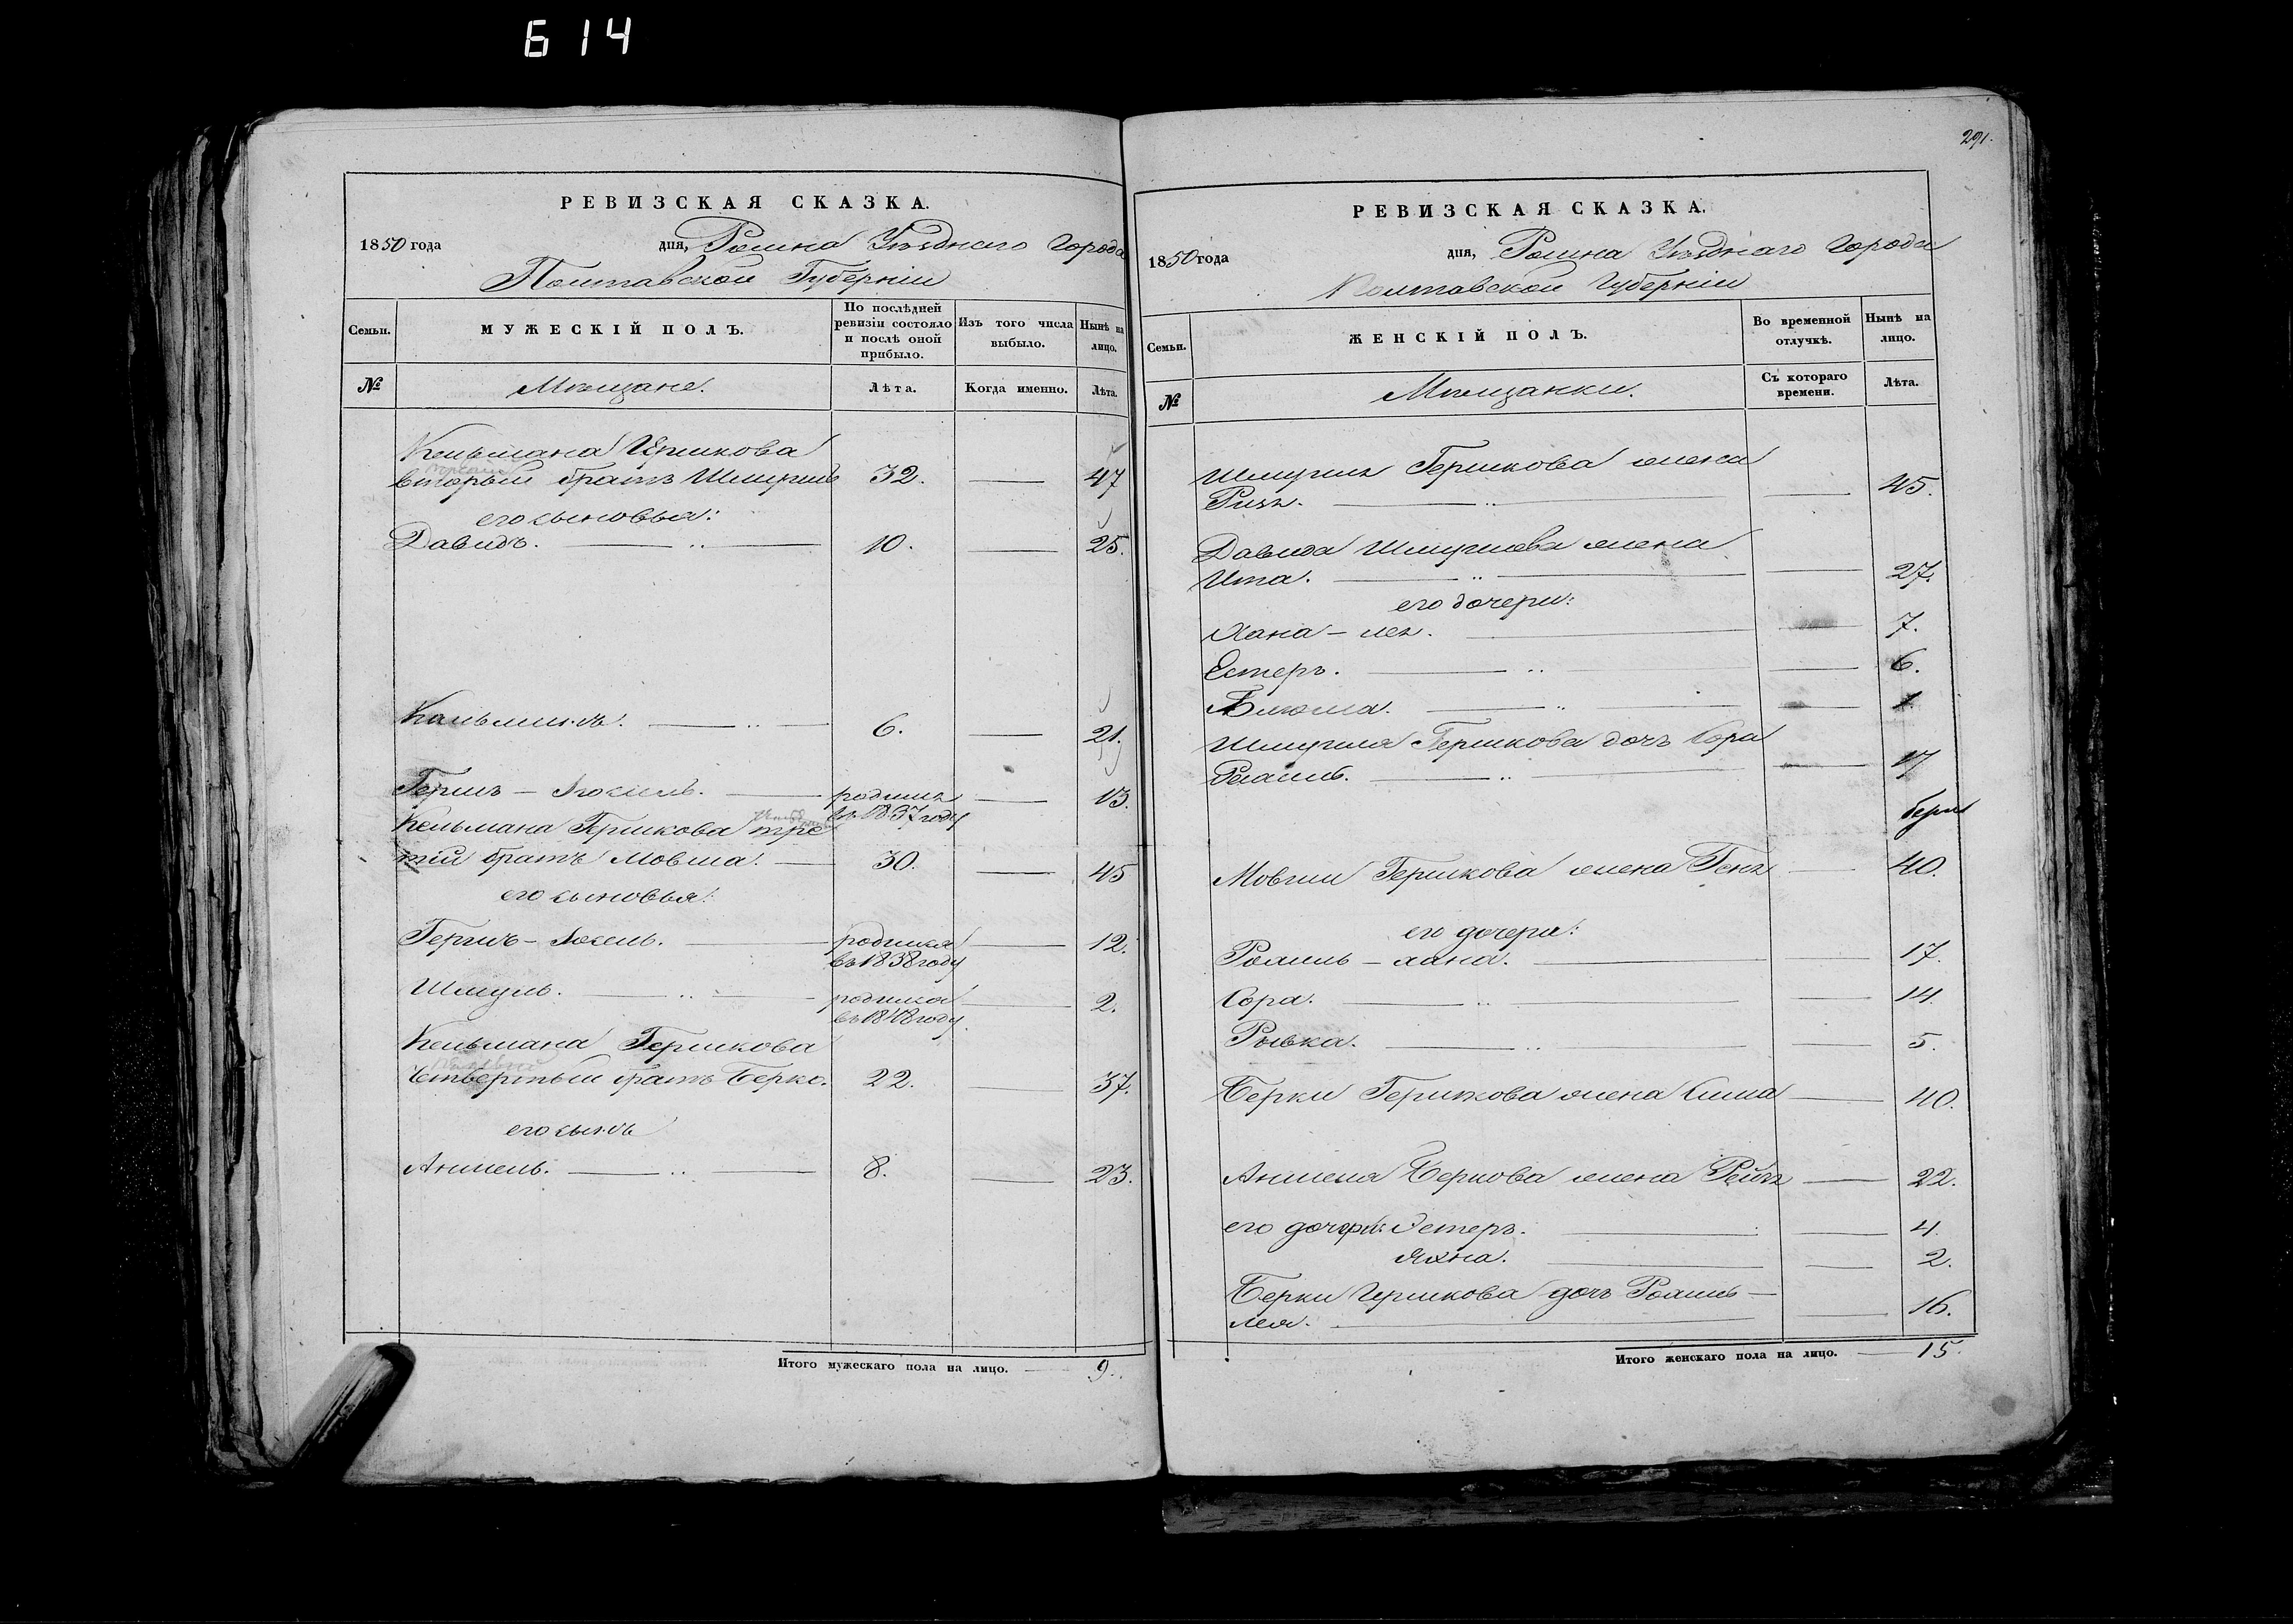 614
РЕВИЗСКАЯ СКАЗКА.
1850 года дня, Ромна Уѣзднаго Города
Полтавской Губерніи
Семьи.
МУЖЕСКІЙ ПОЛЪ.
По послѣдней ревизіи состояло и послѣ оной прибыло.
Изъ того числа выбыло.
Нынѣ на лицо.
№
Мѣщане.
Лѣта.
Когда именно.
Лѣта.
Кельмана Гершкова
вторый братъ Шмуль 32. 47
его сыновья:
Давидъ. 10. 25.
6. 21.
Гершъ - родился 13.
въ 1837 году
Кельмана Гершкова тре
тій братъ Мовша. 30. 45
его сыновья:
Гершъ - родился 12.
въ 1838 году
Шмуль. родился 2.
въ 1848 году
Кельмана Гершкова
четвертый братъ Берко. 22. 37.
его сынъ
Аншель. 8. 23.
Итого мужескаго пола на лицо. 9.
291.
РЕВИЗСКАЯ СКАЗКА.
1850 года дня, Ромна Уѣзднаго Города
Полтавской Губерніи
Семьи.
ЖЕНСКІЙ ПОЛЪ.
Во временной отлучкѣ.
Нынѣ на лицо.
№
Мѣщанки.
Съ котораго времени.
Лѣта.
Шмуля Гершкова жена
45.
Давида Шмулева жена
Ита. 27.
его дочери:
Хана - лея. 7.
Естеръ. 6.
1
Шмуля Гершкова дочь Сора
17
Мовши Гершкова жена Геня 40.
его дочери:
хана. 17.
Сора. 14.
Рывка. 5.
Берки Гершкова жена Сима 40.
Аншеля Беркова жена Рейзя 22.
его дочери: Эстеръ. 4.
Яхна. 2.
Берки Гершкова дочь
лея. 16.
Итого женскаго пола на лицо. 15.